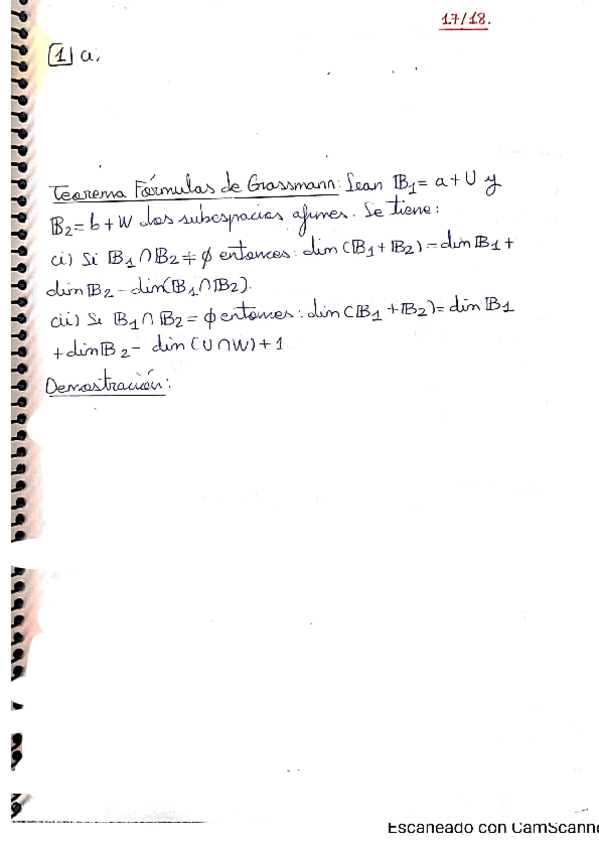 17/18.
1 a.
Teorema Fórmulas de Grassmann: Sean 𝔹₁ = a + U y
𝔹₂ = b + W dos subespacios afines. Se tiene:
(i) Si 𝔹₁ ∩ 𝔹₂ ≠ ϕ entonces: dim (𝔹₁ + 𝔹₂) = dim 𝔹₁ +
dim 𝔹₂ - dim(𝔹₁ ∩ 𝔹₂).
(ii) Si 𝔹₁ ∩ 𝔹₂ = ϕ entonces: dim (𝔹₁ + 𝔹₂) = dim 𝔹₁
+ dim 𝔹₂ - dim (U ∩ W) + 1
Demostración:
Escaneado con CamScanne